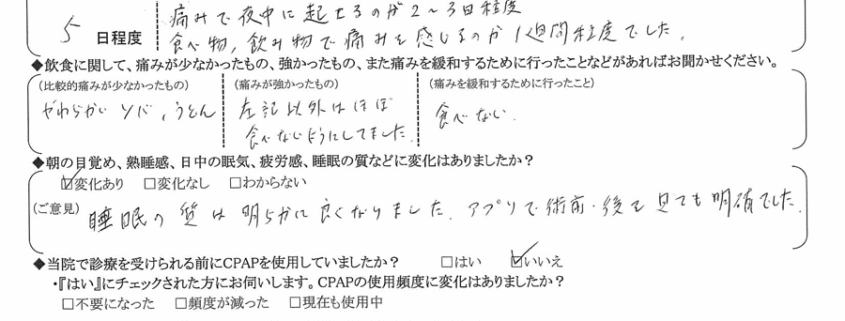 痛みで夜中に起きるのが2〜3日程度
5 日程度
食べ物、飲み物で痛みを感じるのが1週間程度でした。
◆飲食に関して、痛みが少なかったもの、強かったもの、また痛みを緩和するために行ったことなどがあればお聞かせください。
(比較的痛みが少なかったもの) (痛みが強かったもの) (痛みを緩和するために行ったこと)
やわらかいソバ、うどん 左記以外はほぼ 食べない。
食べないようにしてました。
◆朝の目覚め、熟睡感、日中の眠気、疲労感、睡眠の質などに変化はありましたか?
☑変化あり □変化なし □わからない
(ご意見) 睡眠の質は明らかに良くなりました。アプリで術前・後を見ても明確でした。
◆当院で診療を受けられる前にCPAPを使用していましたか? □はい ☑いいえ
・『はい』にチェックされた方にお伺いします。CPAPの使用頻度に変化はありましたか?
□不要になった □頻度が減った □現在も使用中